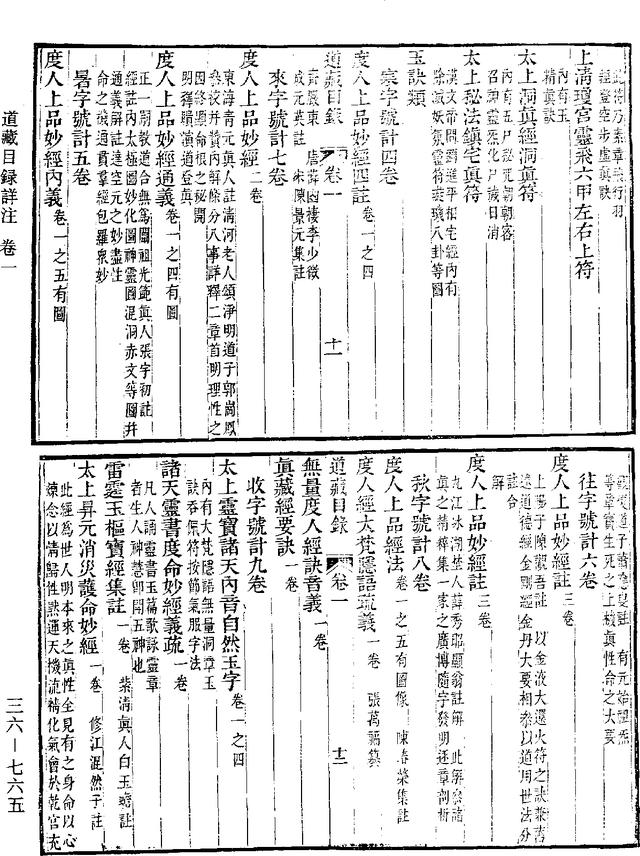 經登空步虛真訣
上清瓊宮靈飛六甲左右上符
內有玉
精真訣
太上洞真經洞真符
召神靈炁化尸滅日消
太上秘法鎮宅真符
漢文帝問劉進平相宅經內有
除滅妖氛靈符八卦等圖
玉訣類
寒字號計四卷
度人上品妙經四註 卷一之四
道藏目錄 卷一 十一
齊嚴東 唐薛幽棲李少微
成元英註 宋陳景元集註
來字號計七卷
度人上品妙經 二卷
東海青元真人註清河老人頌淨明道子郭岡鳳
參校并贊內解除分八事詳釋二章首明理性之
因終顯命根之秘開
明釋蹟演道登真
度人上品妙經通義 卷一之四有圖
正一開教道合無為闡祖光範真人張宇初註
經註內太極圖妙化圖神靈圖混洞赤文等圖并
通義解註達空元之妙盡性
命之機通貫羣經包羅衆妙
暑字號計五卷
度人上品妙經內義 卷一之五有圖
觀復道子蕭應叟註 有元始祖炁
等章贊生死之上機真性命之大要
往字號計六卷
度人上品妙經註 三卷
上陽子陳觀吾註 以金液大還火符之訣兼吉
述道德經金剛經金丹大要相參以道用世法分
註合
解
度人上品妙經註 三卷
九江冰湖華人薛秀昭顯翁註解 此解參諸
真之精粹集一家之廣博隨字發明逐章剖析
秋字號計八卷
度人上品妙經法 卷一之五有圖像 陳春榮集註
度人經大梵隱語疏義 一卷 張萬福纂
道藏目錄 卷一 十二
無量度人經訣音義 一卷
真藏經要訣 一卷
收字號計九卷
太上靈寶諸天內音自然玉字 卷一之四
內有大梵隱語無量洞章玉
訣吞佩符按節氣服字法
諸天靈書度命妙經義疏 一卷
凡人誦靈書玉篇歌詠靈章
者生人神慧卽開五神也
雷霆玉樞寶經集註 一卷 紫清真人白玉蟾註
太上昇元消災護命妙經 一卷 修江混然子註
此經為世人明本來之真性全見有之身命以心
煉念以情歸性默通天機流精化氣會於乾宮充
道藏目錄詳注 卷一
三六—七六五